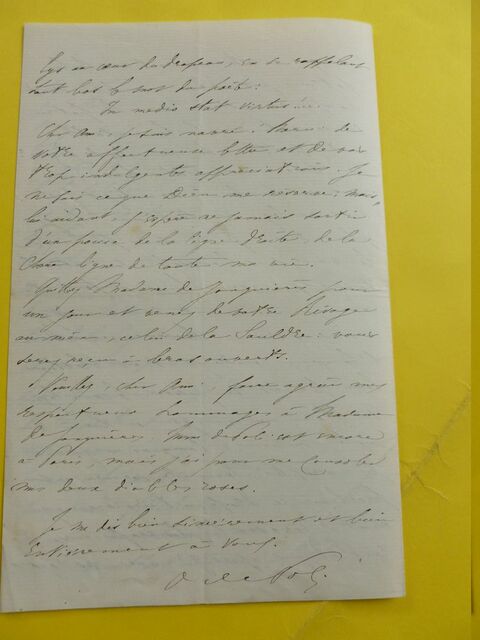 lys au cœur du drapeau, en se rappelant
tout bas le mot du poète :
In medio stat virtus !..
Cher Ami, je suis navré ! Merci de
votre affectueuse lettre et de vos
trop indulgentes appréciations. Je
ne sais ce que Dieu me réserve ; mais,
lui aidant, j'espère ne jamais sortir
d'un pouce de la ligne droite, de la
chère ligne de toute ma vie.
Quittez Madame de Jonquières pour
un jour et venez de votre Rivage
au mien, celui de la Sauldre : vous
serez reçu à bras ouverts.
Veuillez, cher Ami, faire agréer mes
respectueux hommages à Madame
de Jonquières. Mme de Poli est encore
à Paris, mais j'ai pour me consoler
mes deux diables roses.
Je me dis bien sincèrement et bien
entièrement à vous.
O. de Poli